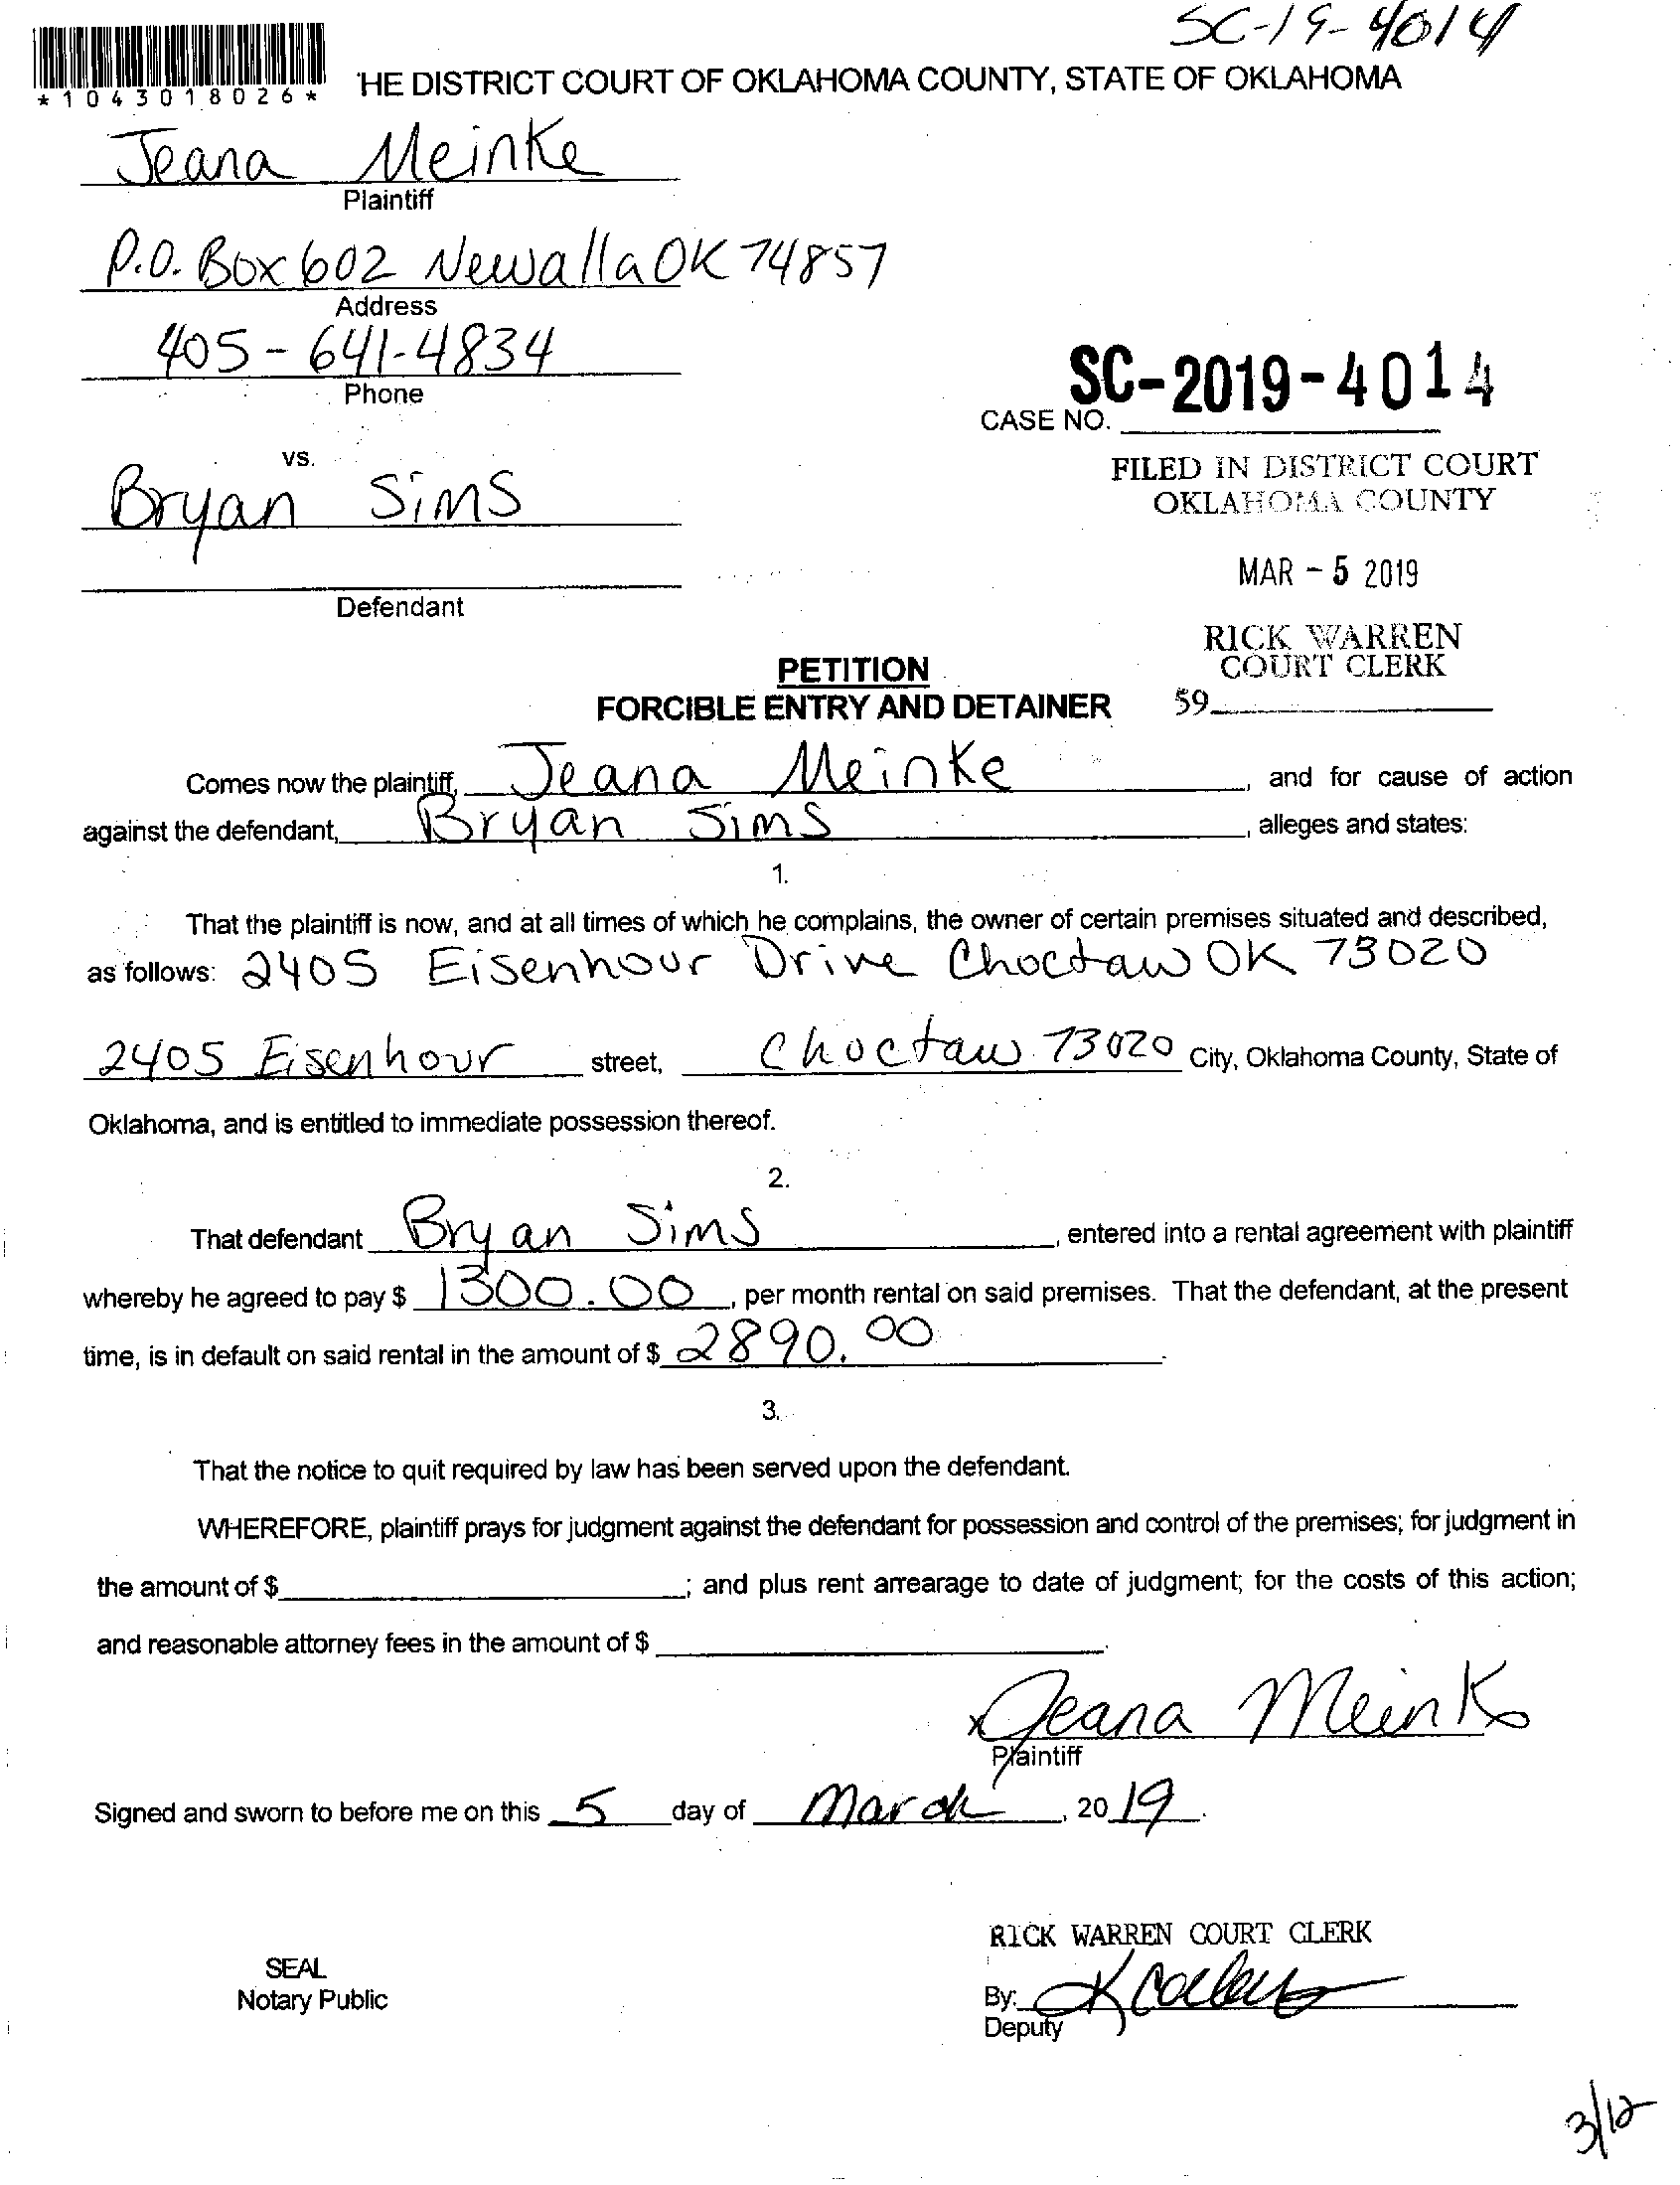 SC-19-4014
*1043018026*
'HE DISTRICT COURT OF OKLAHOMA COUNTY, STATE OF OKLAHOMA
Jeana Meinke
Plaintiff
P.O. Box 602 Newalla OK 74857
Address
405-641-4834
Phone
SC-2019-4014
CASE NO.
vs.
FILED IN DISTRICT COURT
OKLAHOMA COUNTY
Bryan Sims
MAR - 5 2019
Defendant
RICK WARREN
COURT CLERK
59
PETITION
FORCIBLE ENTRY AND DETAINER
Comes now the plaintiff, Jeana Meinke, and for cause of action
against the defendant, Bryan Sims, alleges and states:
1.
That the plaintiff is now, and at all times of which he complains, the owner of certain premises situated and described,
as follows: 2405 Eisenhour Drive Choctaw OK 73020
2405 Eisenhour street, Choctaw 73020 City, Oklahoma County, State of
Oklahoma, and is entitled to immediate possession thereof.
2.
That defendant Bryan Sims, entered into a rental agreement with plaintiff
whereby he agreed to pay $ 1300.00, per month rental on said premises. That the defendant, at the present
time, is in default on said rental in the amount of $ 2890.00.
3.
That the notice to quit required by law has been served upon the defendant.
WHEREFORE, plaintiff prays for judgment against the defendant for possession and control of the premises; for judgment in
the amount of $ ; and plus rent arrearage to date of judgment; for the costs of this action;
and reasonable attorney fees in the amount of $ .
x Jeana Meinke
Plaintiff
Signed and sworn to before me on this 5 day of March, 2019.
RICK WARREN COURT CLERK
SEAL
Notary Public
By:
Deputy
3/12